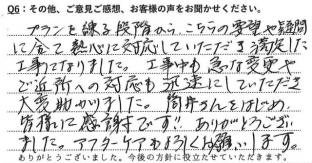 Q6：その他、ご意見ご感想、お客様の声をお聞かせください。
プランを練る段階から、こちらの要望や疑問
に全て熱心に対応していただき満足した
工事となりました。工事中も急な変更や
ご近所への対応も迅速にしていただき
大変助かりました。筒井さんをはじめ
皆様に感謝です!! ありがとうござい
ました。アフターケアもよろしくお願いします。
ありがとうございました。今後の方針に役立たせていただきます。